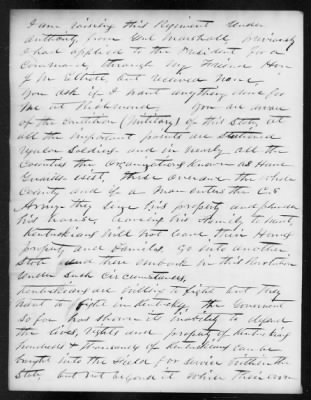 I am raising this Regiment under
authority from Genl Marshall previously
I had applied to the President for a
Command, through my Friend Hon
J M Elliott, but received none,
You ask if I want anything done for
me at Richmond, You are aware
of the condition (Military) of this State, at
all the important points are stationed
regular Soldiers and in nearly all the
Counties the organizations known as Home
Guards exist, these overawe the whole
County and if a Man enters the C.S.
Army they seize his property and plunder
his house, leaving his family to want,
Kentuckians will not leave their Homes
property and Families, Go into another
State and embark in this Revolution
under such circumstances,
Kentuckians are willing to fight but they
want to fight in Kentucky, the Government
so far has shown its inability to defend
the lives, rights and property of Kentuckians
hundreds & thousands of Kentuckians can be
brought into the field for service within the
State but not beyond it while their own